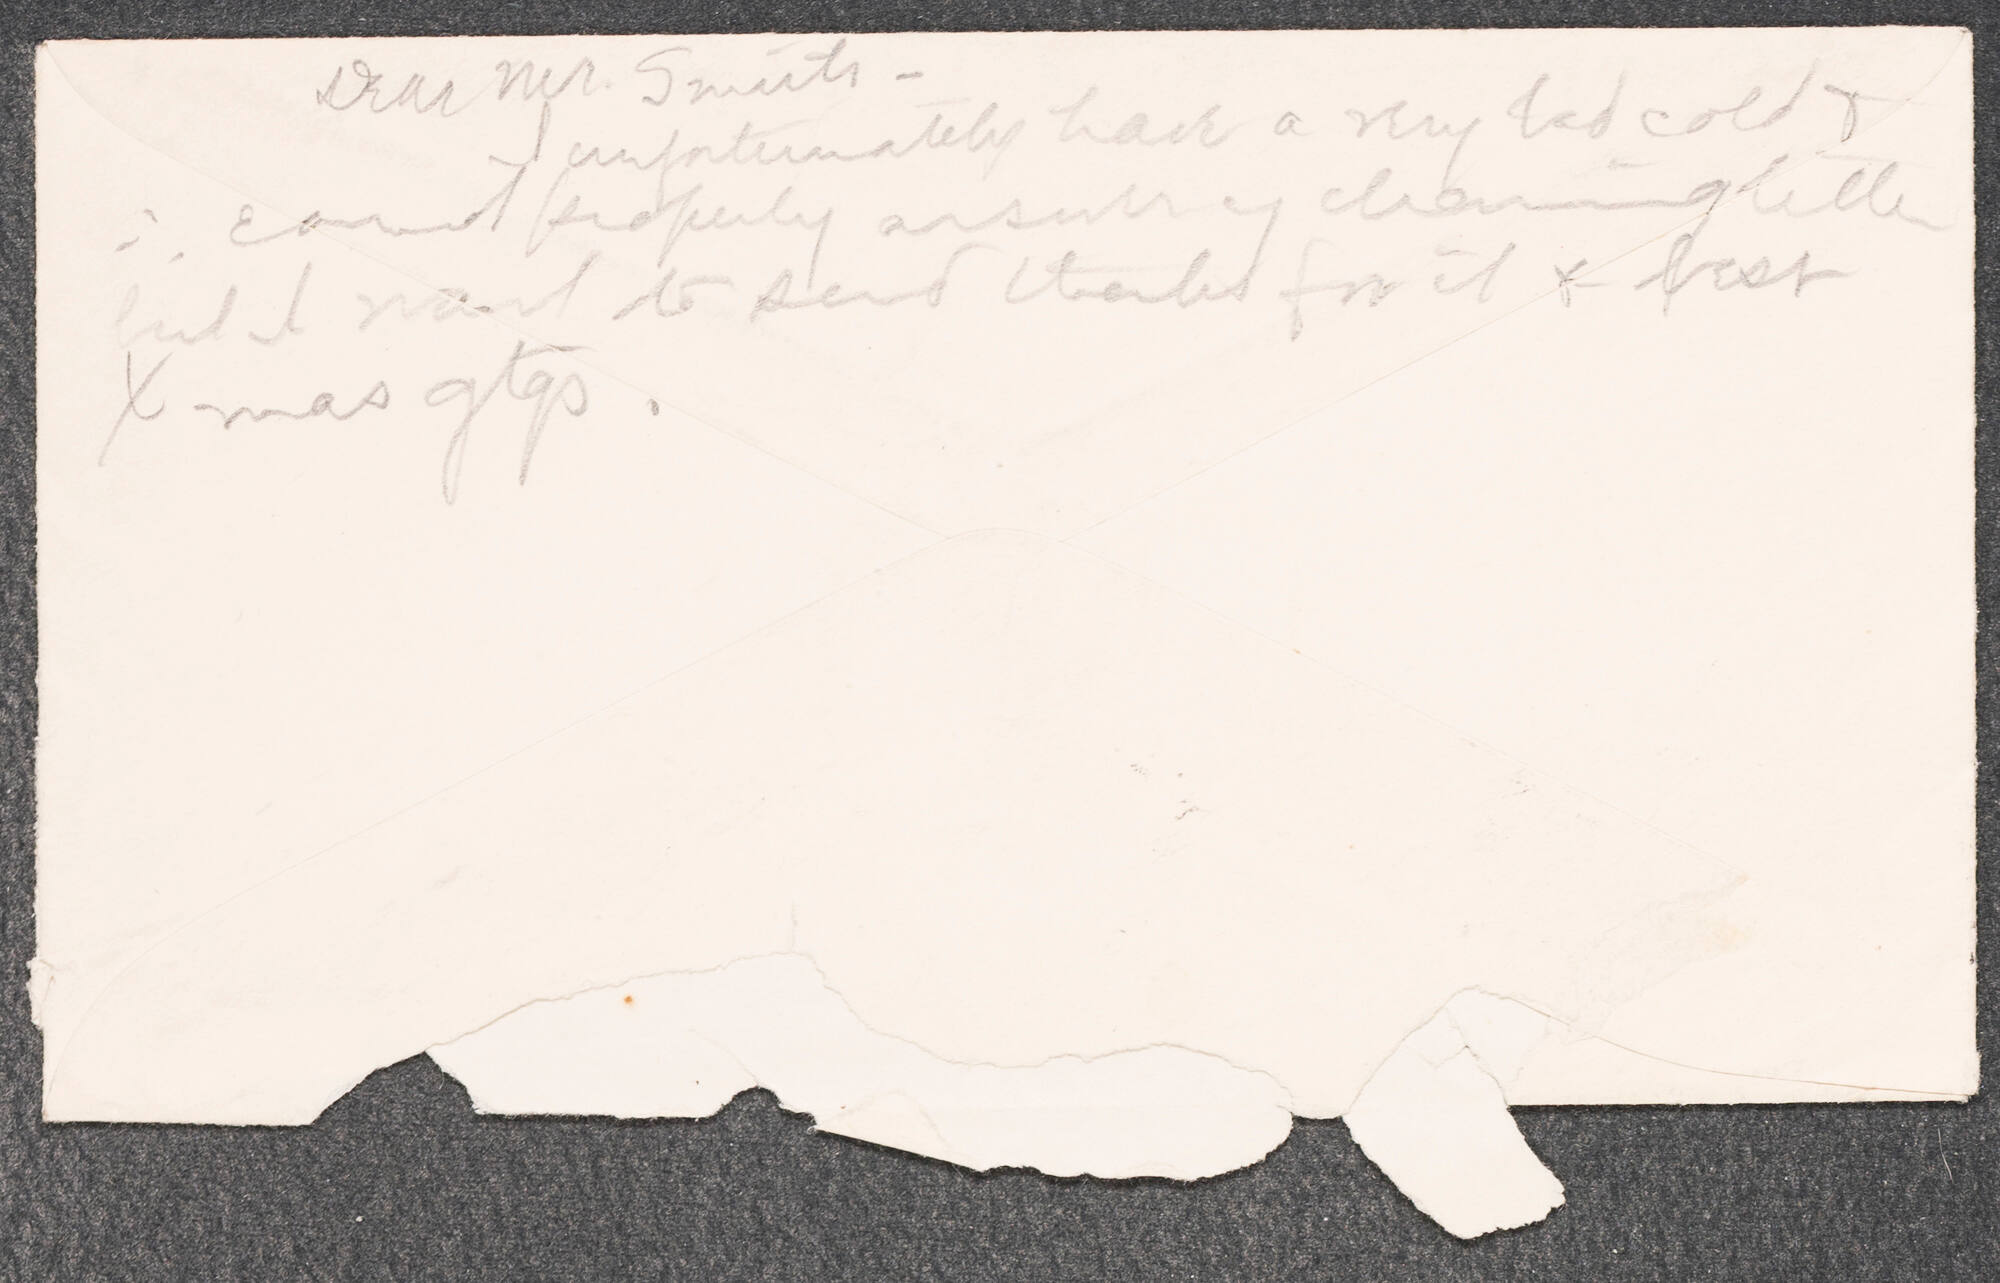 Dear Mr. Smith -
I unfortunately have a very bad cold &
∴ cannot properly answer yr charming letter
but I want to send thanks for it & best
Xmas gtgs.